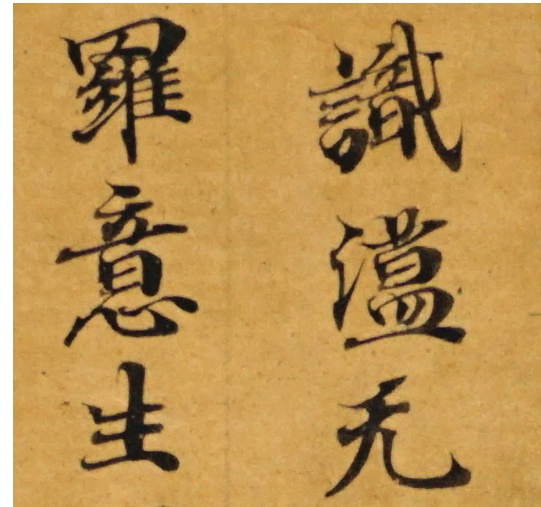 識薀无
羅意生